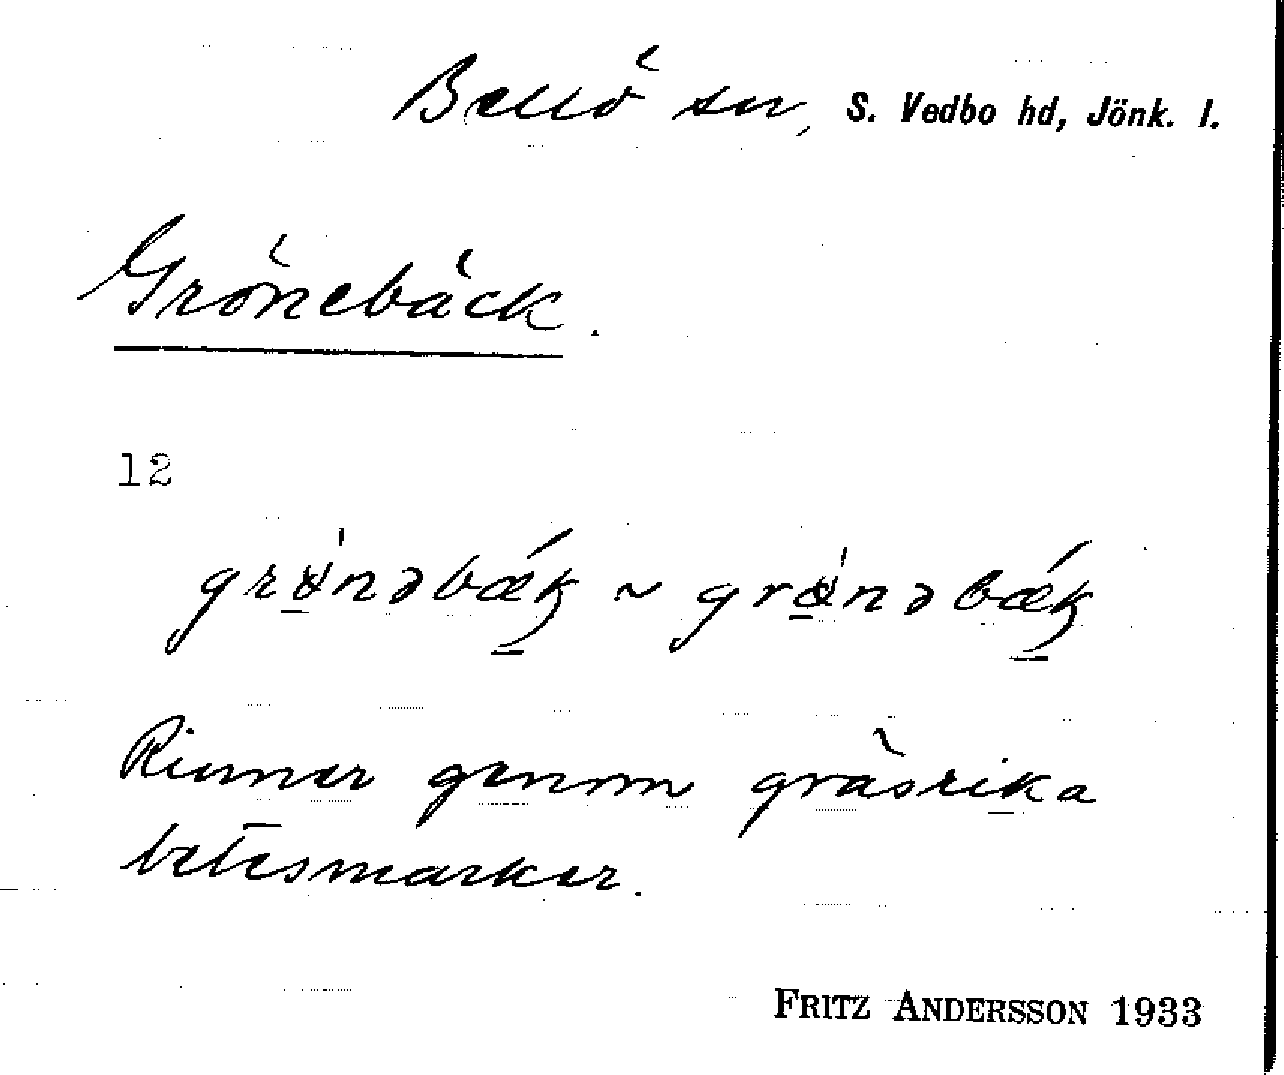 Bellö sn, S. Vedbo hd, Jönk. l.
Grönebäck.
12
grö̀nəbǽk ~ grö̀nəbǽk
Rinner genom gräsrika
betesmarker.
FRITZ ANDERSSON 1933